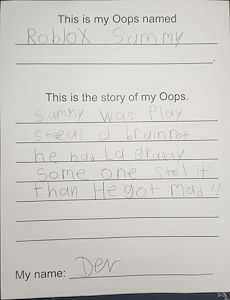 This is my Oops named
Roblox Sammy
This is the story of my Oops.
Sammy Was Play
steal a brainrot
he had La graday
Some one stol it
than He got mad !!
My name: Dev